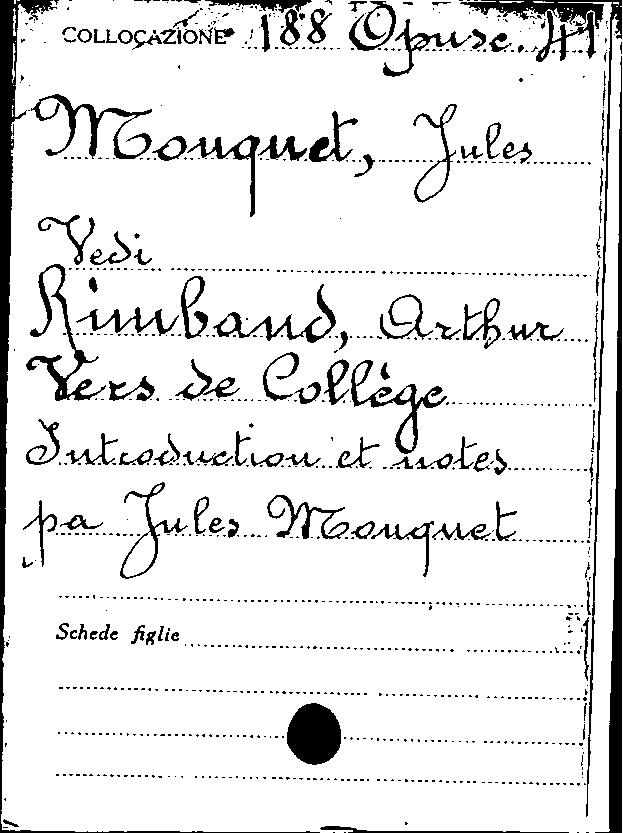 COLLOCAZIONE 188 Opusc. 41
Mouquet, Jules
Vedi
Rimbaud, Arthur
Vers de Collège
Introduction et notes
pa Jules Mouquet
Schede figlie